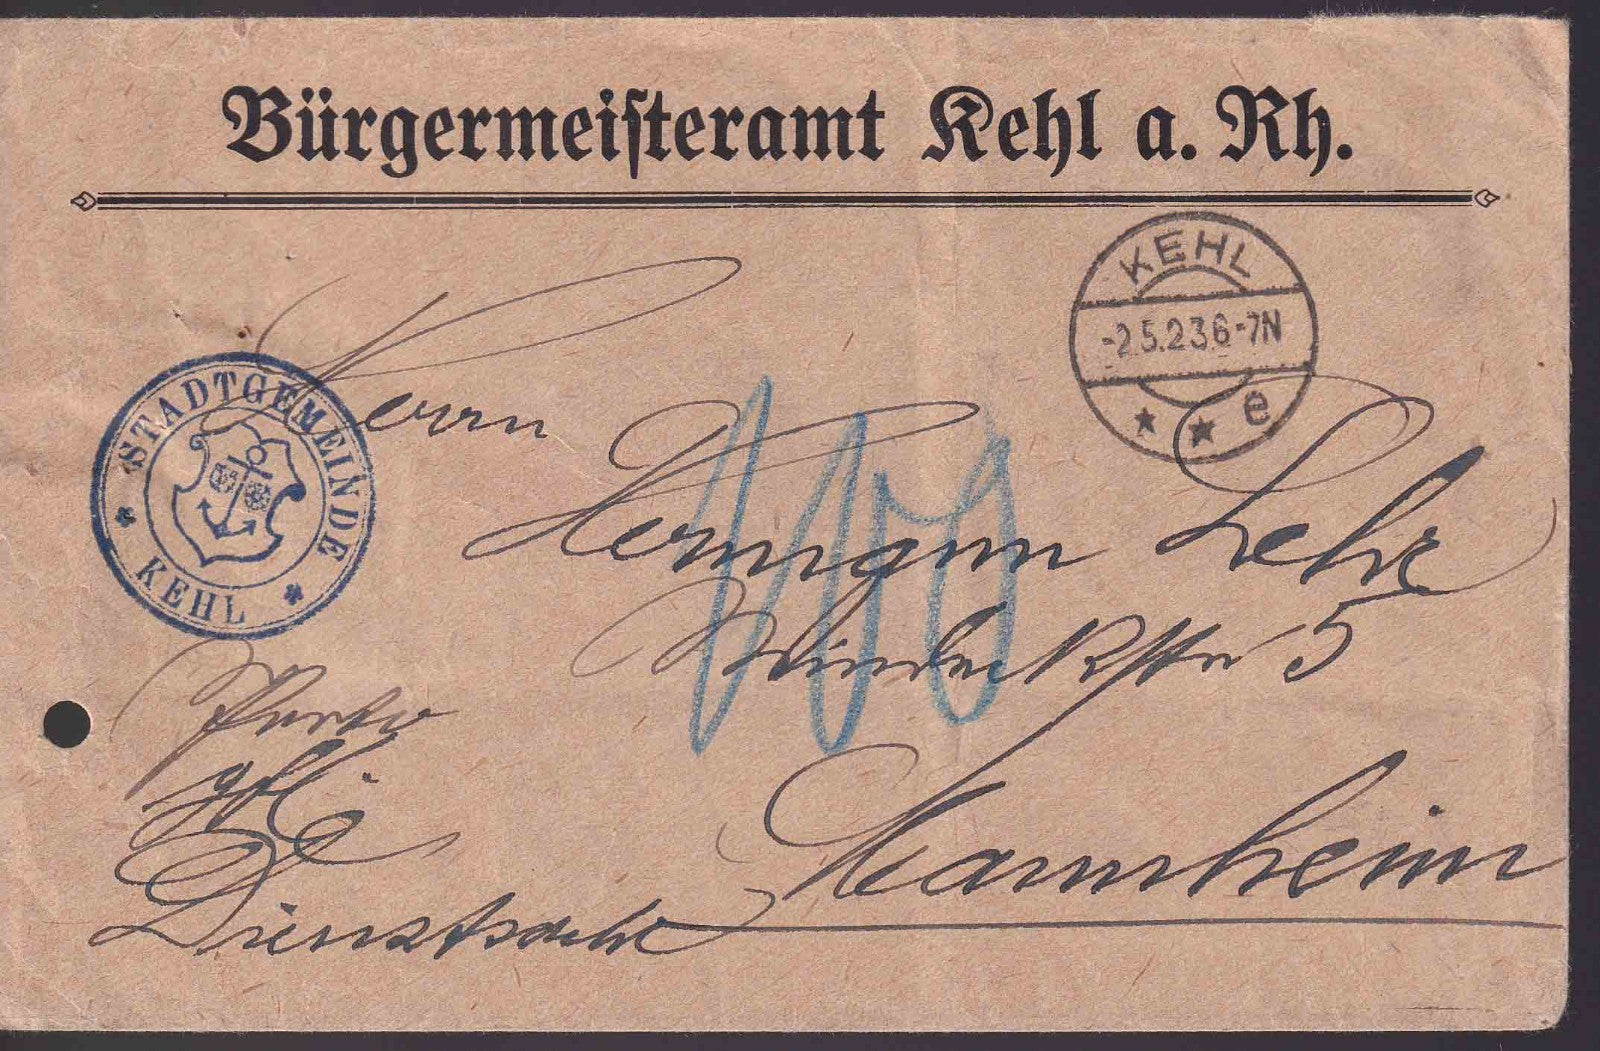 Bürgermeiſteramt Kehl a. Rh.
KEHL
-2.5.23.6-7N
* * e
STADTGEMEINDE
* KEHL *
Herrn
Hermann Lehr
Windeckstr 5
100
Porto
Mannheim
Dienstsache